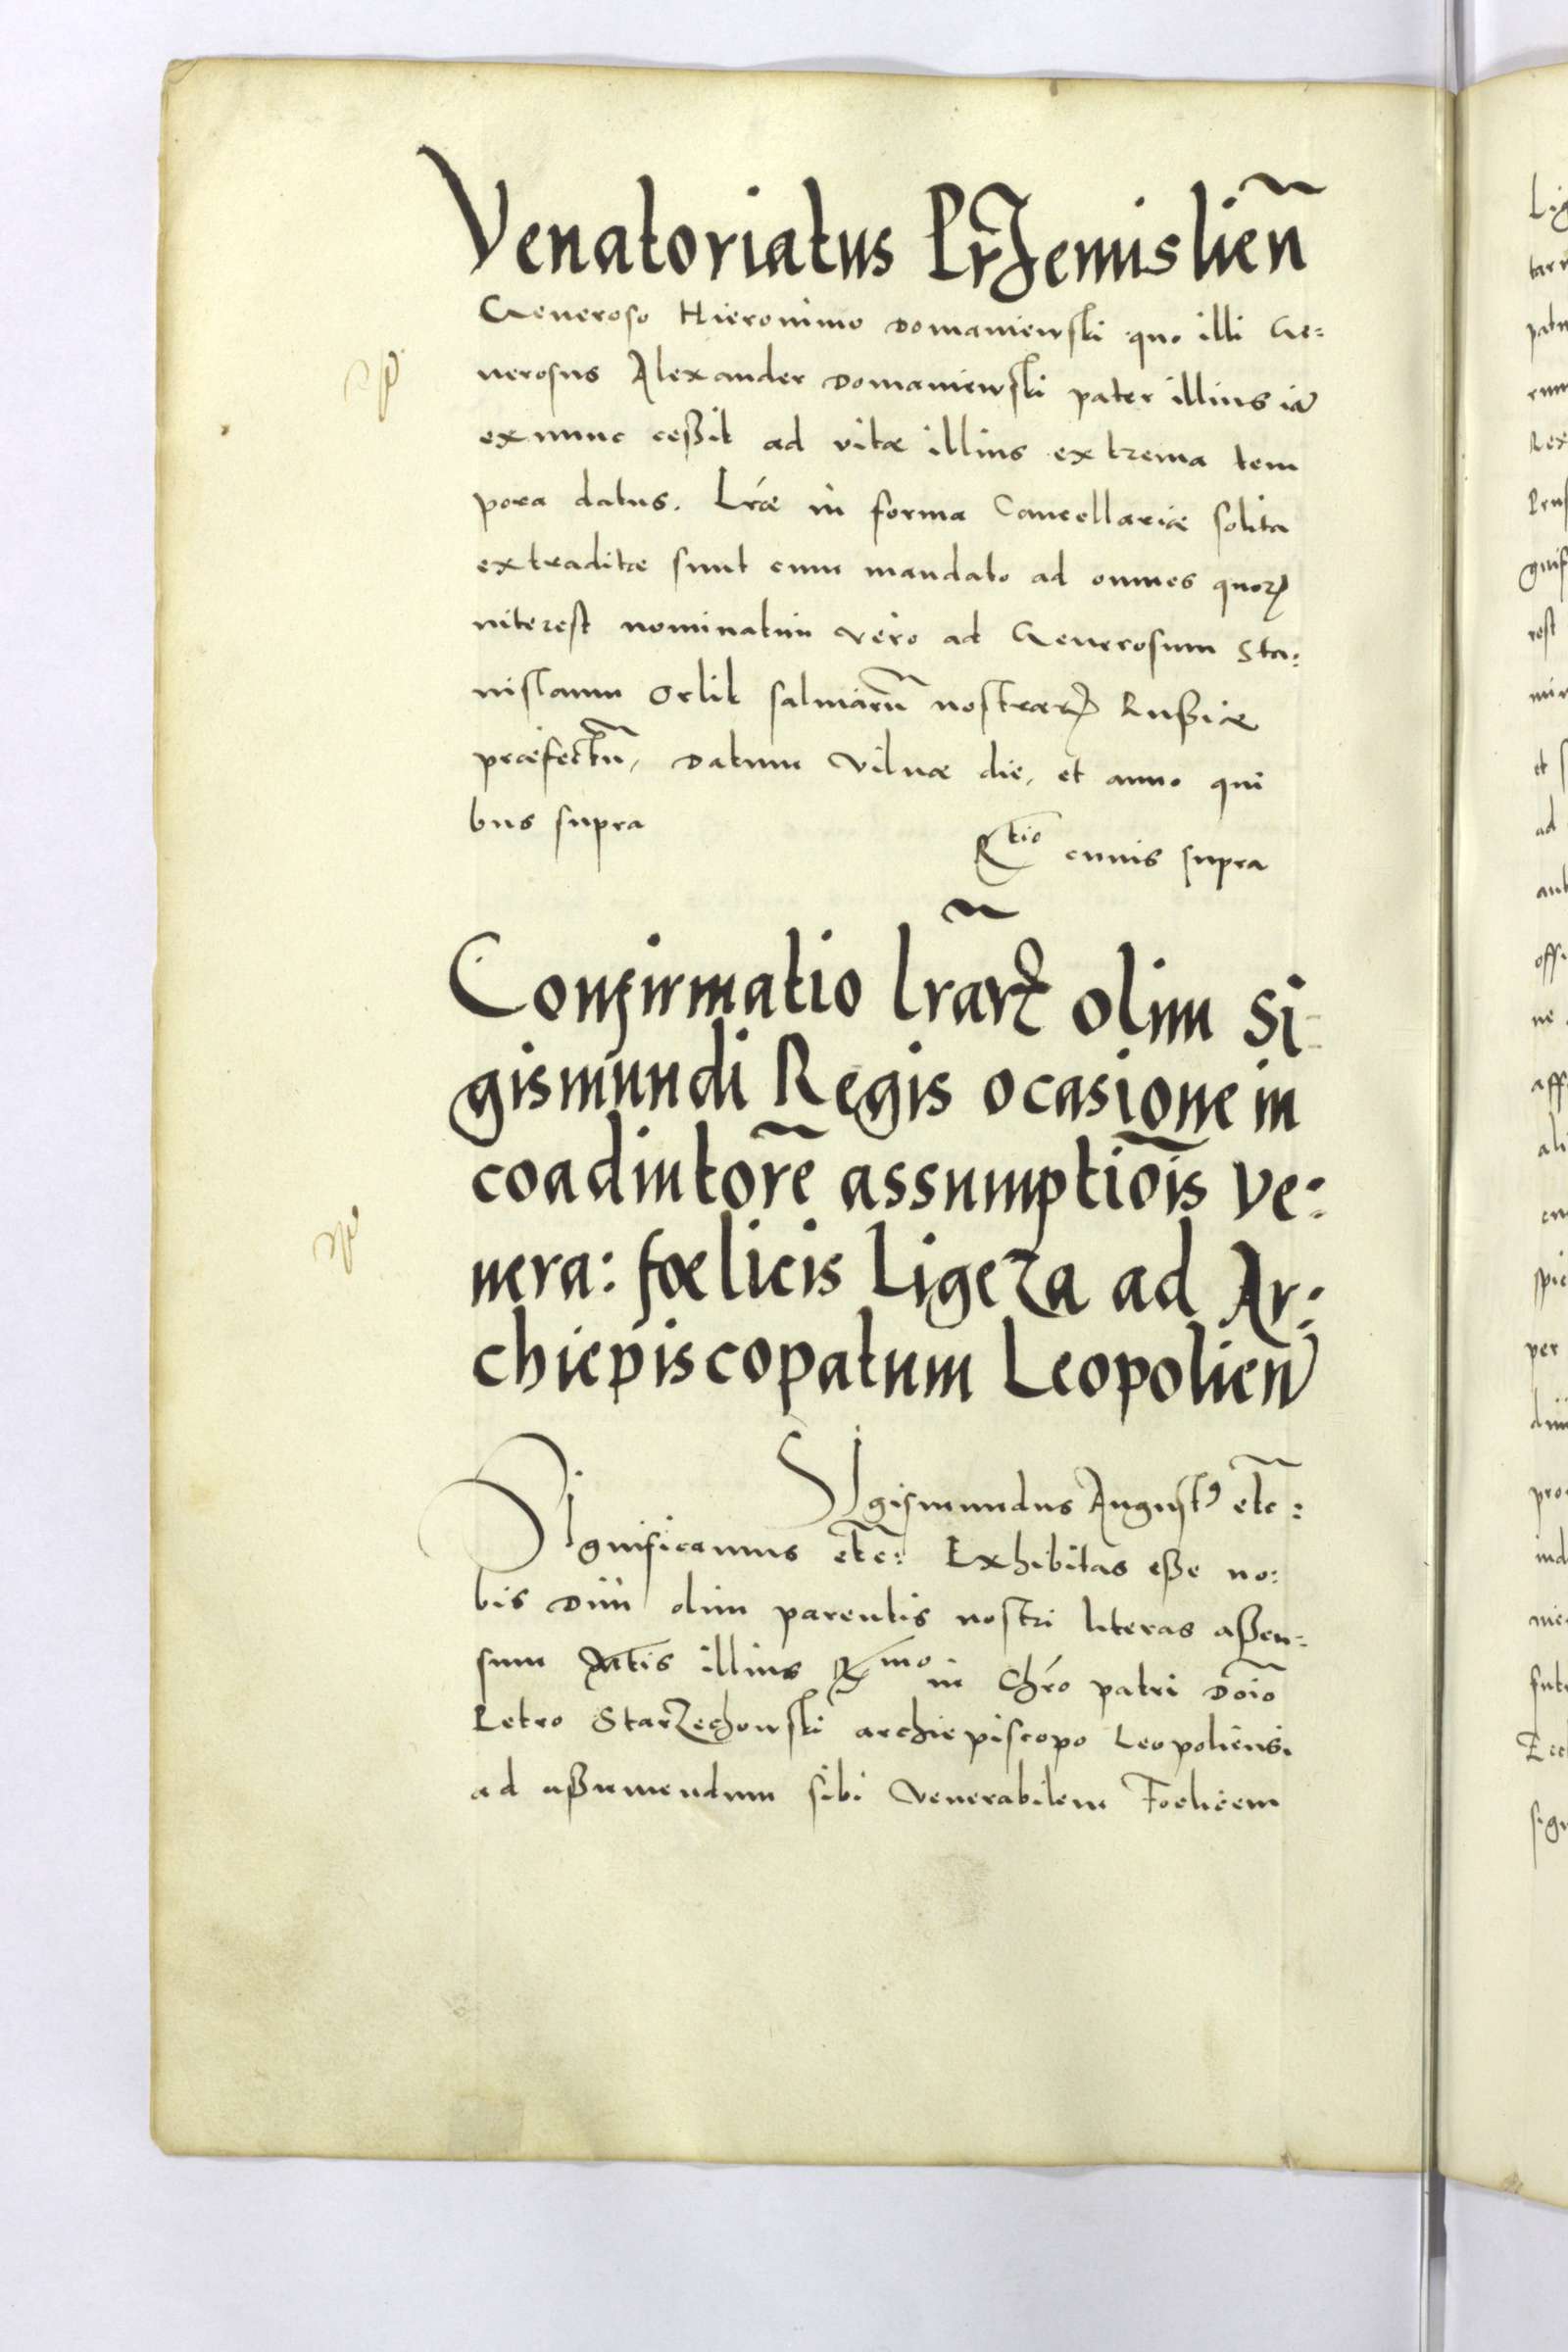 Venatoriatus PrZemislien̄
Generoso Hieronimo Domaniewski quo illi Ge:
nerosus Alexander Domaniewski pater illius iā
ex nunc ceßit ad vitæ illius extrema tem
pora datus. Lræ in forma Cancellariæ solita
extraditæ sunt cum mandato ad omnes quoꝝ
interest nominatim vero ad Generosum Sta:
nislaum Orlik saliniarū nostraꝝ Rußiæ
præfectū, Datum Vilnæ die, et anno qui
bus supra
Rtio cuius supra
Confirmatio lr̄aꝝ olim Si
gismundi Regis ocasione in
coadiutorē assumptiōis Ve:
nera: fœlicis Ligeza ad Ar:
chiepiscopatum Leopolien̄
SIgismundus August⁹ etc:
SIgnificamus etc: Exhibitas eße no:
bis Diui olim parentis nostri literas aßen:
sum Mtis illius Rmo in Chro patri Dōio
Petro StarZechowski archiepiscopo Leopoliensi
ad aßumendum sibi Venerabilem Foelicem